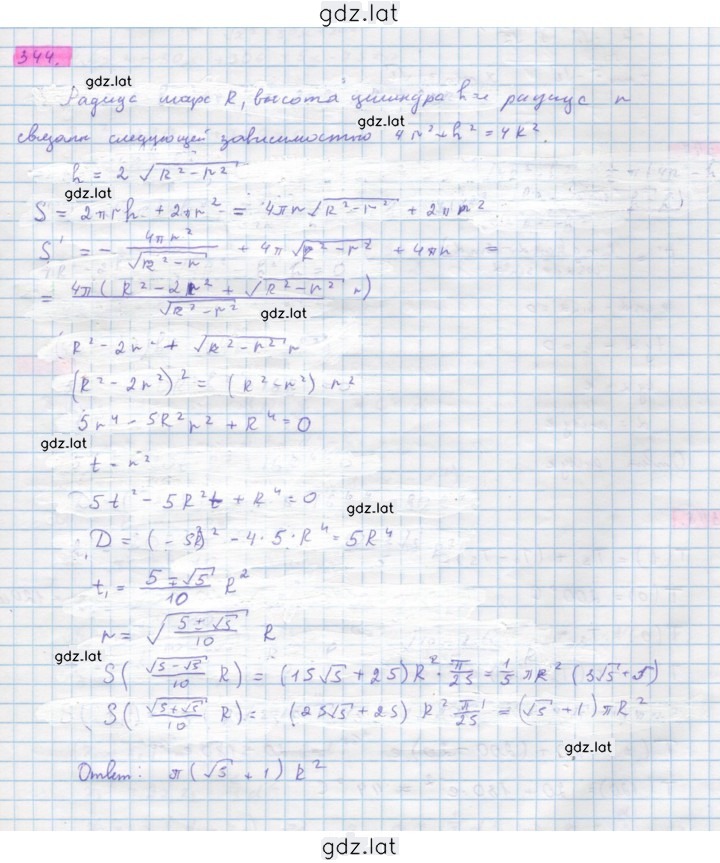 gdz.lat
344.
gdz.lat
Радиус шара R, высота цилиндра h и радиус r
gdz.lat
связаны следующей зависимостью 4r² + h² = 4R².
h = 2 √(R² - r²)
gdz.lat
S = 2πrh + 2πr² = 4πr√(R² - r²) + 2πr²
S' = - 4πr²/√(R² - r) + 4π√(R² - r²) + 4πr =
= 4π(R² - 2r² + √(R² - r²) r)/√(R² - r²)
gdz.lat
R² - 2r + √(R² - r²) r
(R² - 2r²)² = (R² - r²) r²
5r⁴ - 5R²r² + R⁴ = 0
gdz.lat
t = r²
5t² - 5R²t + R⁴ = 0
gdz.lat
D = (-5R²)² - 4·5·R⁴ = 5R⁴
t₁ = (5 ∓ √5)/10 R²
r = √((5 ± √5)/10) R
gdz.lat
S(√(5 - √5)/10 R) = (15√5 + 25)R² · π/25 = 1/5 πR² (3√5 + 5)
S(√(5 + √5)/10 R) = (25√5 + 25) R² π/25 = (√5 + 1)πR²
gdz.lat
Ответ: π(√5 + 1) R²
gdz.lat